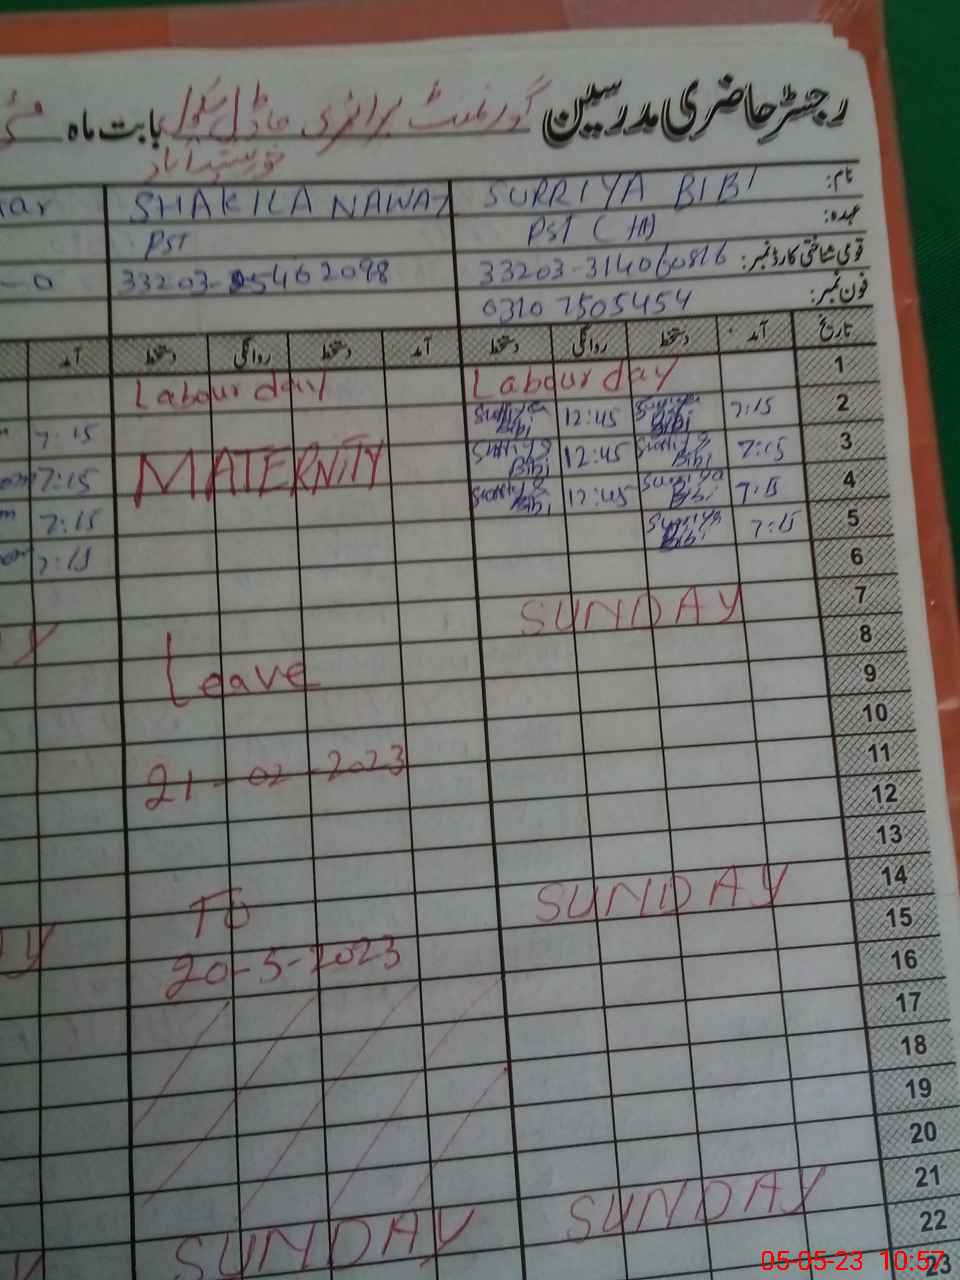 رجسٹر حاضری مدرسین گورنمنٹ پرائمری ماڈل سکول بابت ماہ مئی
خورشید آباد
نام: SURRIYA BIBI SHAKILA NAWAZ
عہدہ: PST (H) PST
قومی شناختی کارڈ نمبر: 33203-314060816 33203-05462098 -0
فون نمبر: 0310 7505454
تاریخ آمد دستخط روانگی دستخط آمد دستخط روانگی دستخط آمد
1 Labour day Labour day
2 7:15 Surriya Bibi 12:45 Surriya Bibi 7:15
3 7:15 Surriya Bibi 12:45 Surriya Bibi MATERNITY 7:15
4 7:15 Surriya Bibi 12:45 Surriya Bibi 7:15
5 7:15 Surriya Bibi 7:15
6
7 SUNDAY
8 Leave
9
10
11 21-02-2023
12
13
14 SUNDAY To
15
16 20-5-2023
17
18
19
20
21 SUNDAY SUNDAY
22
23
05-05-23 10:57